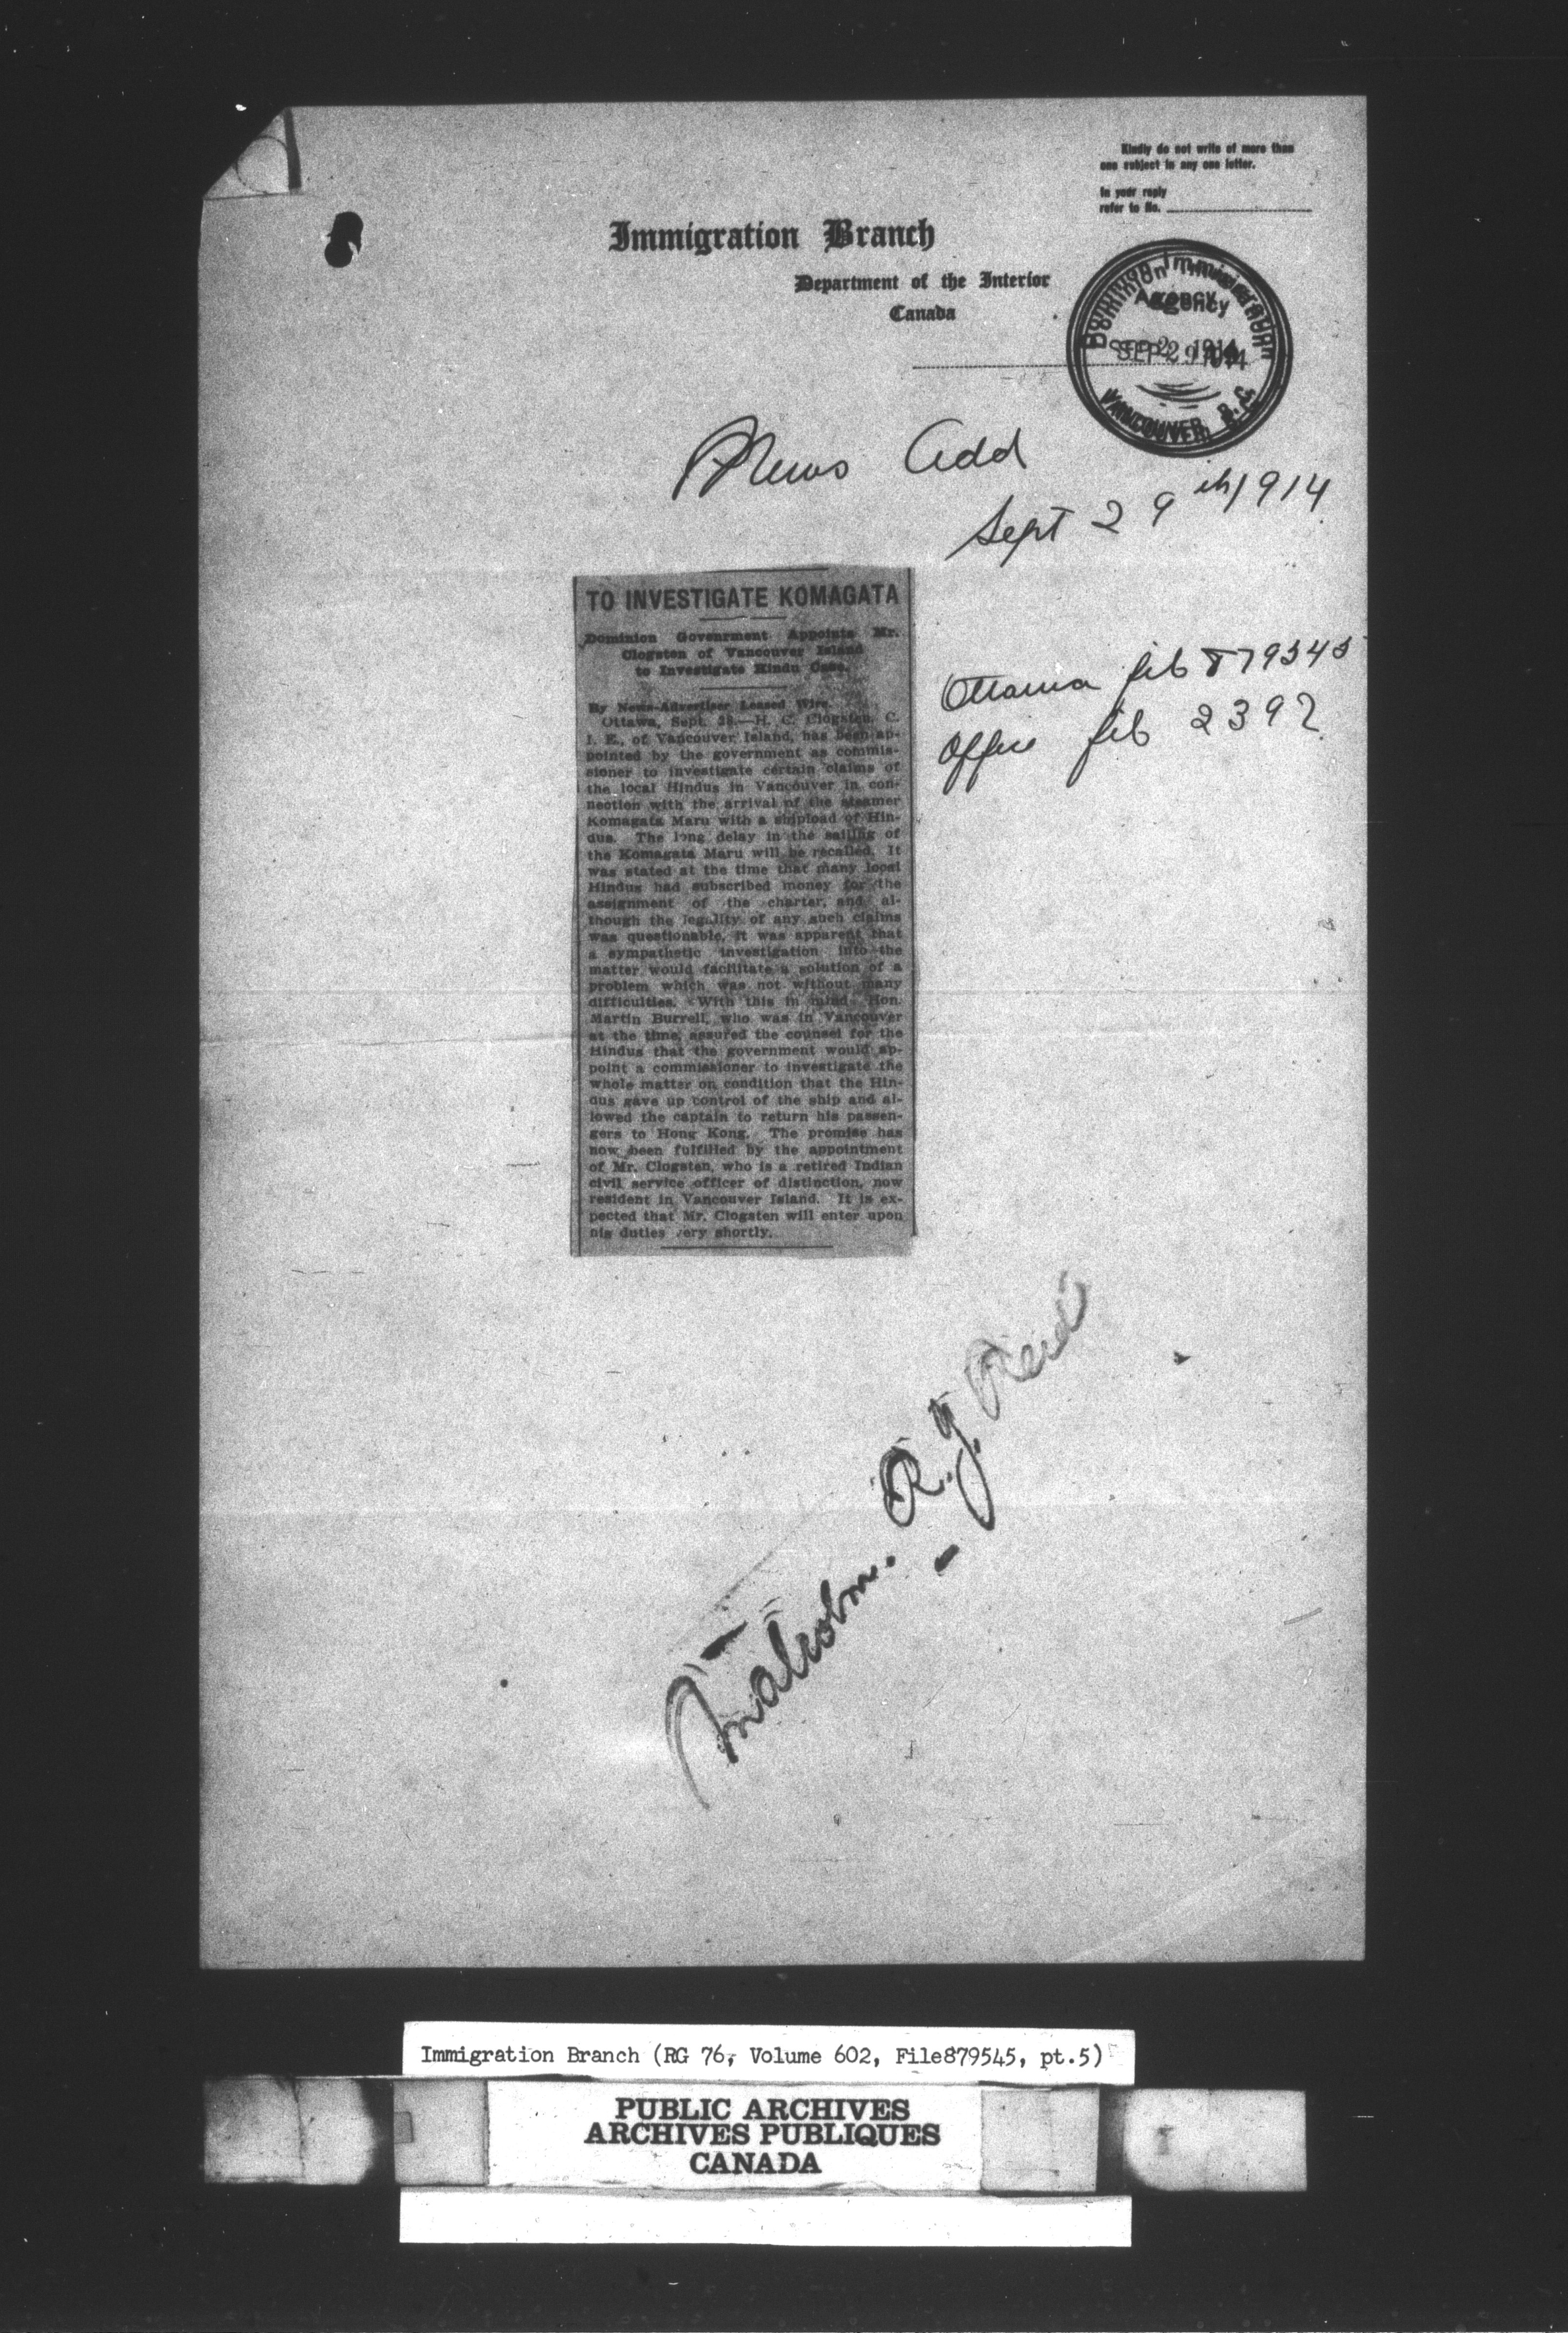 Kindly do not write of more than
one subject in any one letter.
In your reply
refer to No.
Immigration Branch
Department of the Interior
Canada
Dominion Immigration
Agency
SEP 29 1914
VANCOUVER, B.C.
News Add
Sept 29th 1914
TO INVESTIGATE KOMAGATA
Dominion Govenrment Appoints Mr.
Clogsten of Vancouver Island
to Investigate Hindu Case.
By News-Advertiser Leased Wire.
Ottawa, Sept. 28.—H. C. Clogsten, C.
I. E., of Vancouver Island, has been ap-
pointed by the government as commis-
sioner to investigate certain claims of
the local Hindus in Vancouver in con-
nection with the arrival of the steamer
Komagata Maru with a shipload of Hin-
dus. The long delay in the sailing of
the Komagata Maru will be recalled. It
was stated at the time that many local
Hindus had subscribed money for the
assignment of the charter, and al-
though the legality of any such claims
was questionable, it was apparent that
a sympathetic investigation into the
matter would facilitate a solution of a
problem which was not without many
difficulties. With this in mind Hon.
Martin Burrell, who was in Vancouver
at the time, assured the counsel for the
Hindus that the government would ap-
point a commissioner to investigate the
whole matter on condition that the Hin-
dus gave up control of the ship and al-
lowed the captain to return his passen-
gers to Hong Kong. The promise has
now been fulfilled by the appointment
of Mr. Clogsten, who is a retired Indian
civil service officer of distinction, now
resident in Vancouver Island. It is ex-
pected that Mr. Clogsten will enter upon
his duties very shortly.
Ottawa file 879545
Office file 2392
Malcolm. R. J. Reid
Immigration Branch (RG 76, Volume 602, File879545, pt.5)
PUBLIC ARCHIVES
ARCHIVES PUBLIQUES
CANADA